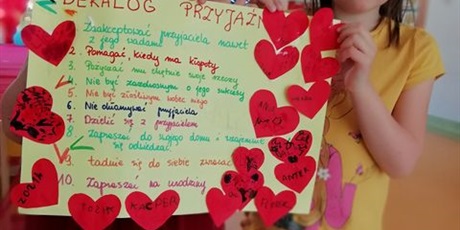 DEKALOG PRZYJAŹNI
1. Zaakceptować przyjaciela nawet
z jego wadami
2. Pomagać, kiedy ma kłopoty
3. Pożyczać mu chętnie swoje rzeczy
4. Nie być zazdrosnym o jego sukcesy
5. Nie być złośliwym wobec niego
6. Nie okłamywać przyjaciela
7. Dzielić się z przyjacielem
8. Zapraszać do swojego domu i wzajemnie
się odwiedzać
9. Ładnie się do siebie zwracać
10. Zapraszać na urodziny
KACPER
ANTEK